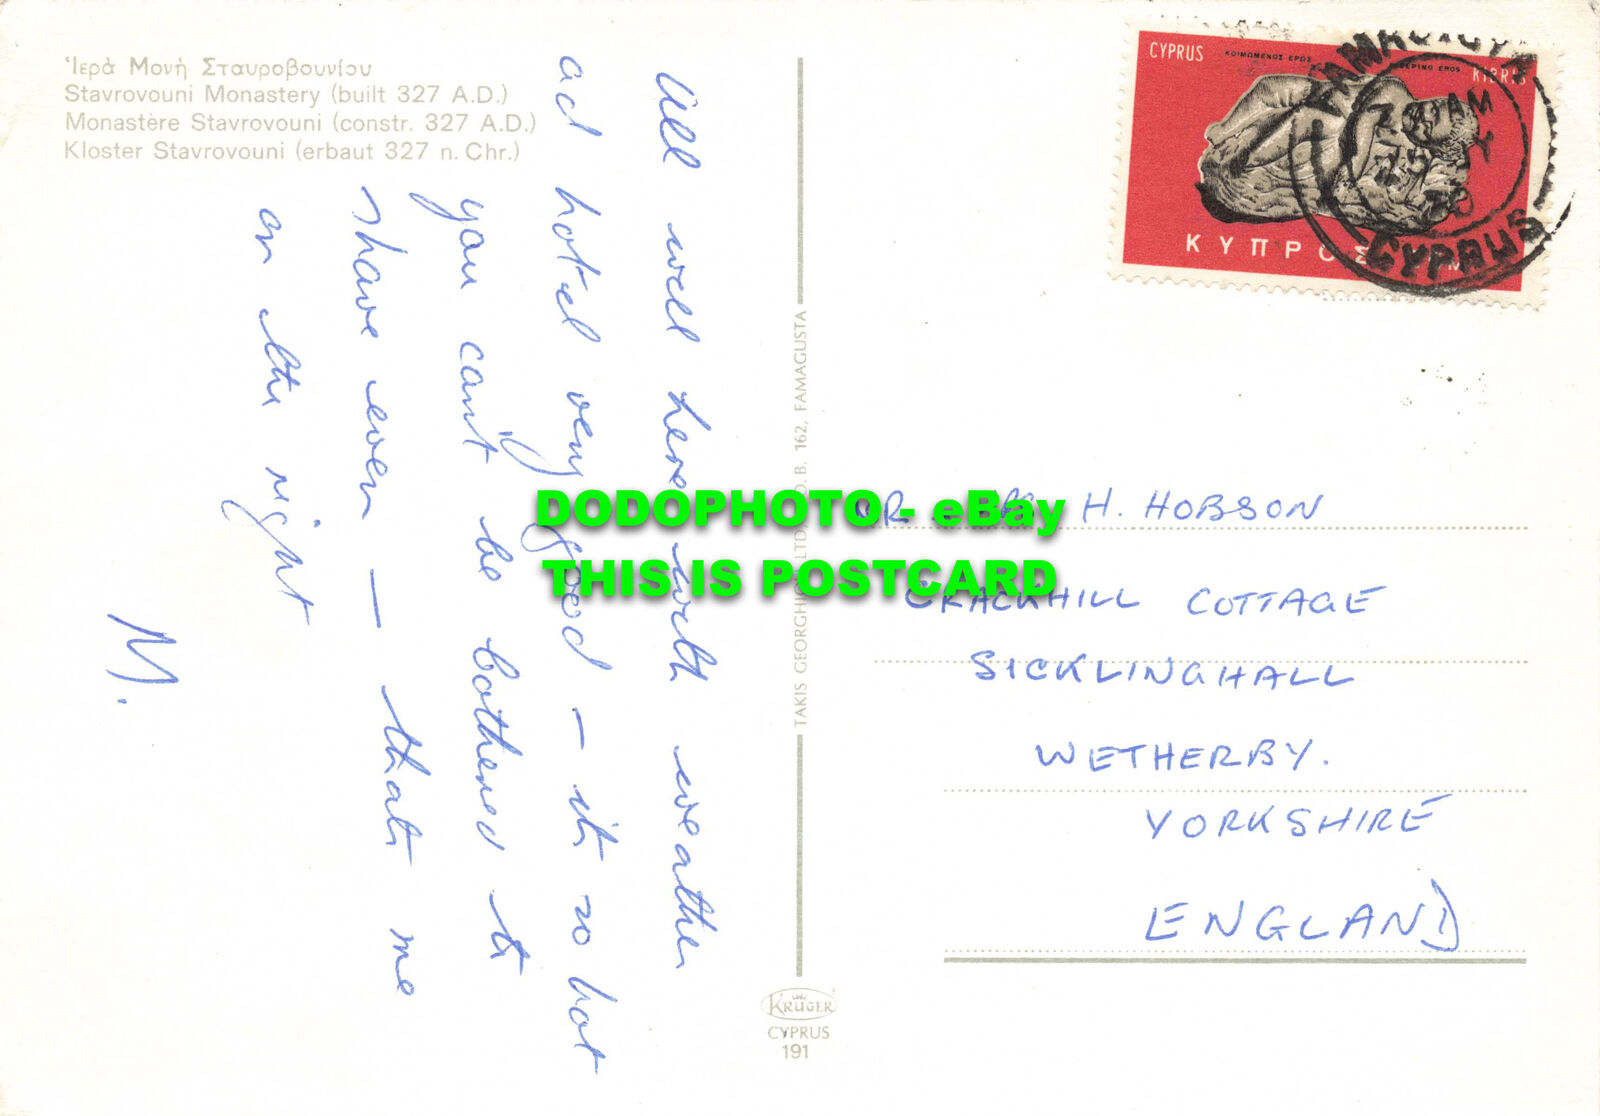 Ἱερὰ Μονὴ Σταυροβουνίου
Stavrovouni Monastery (built 327 A.D.)
Monastère Stavrovouni (constr. 327 A.D.)
Kloster Stavrovouni (erbaut 327 n. Chr.)
All well here with weather
ad hotel very good – its so hot
you can't be bothered to
shave even – thats me
on the right
M.
TAKIS GEORGHIOU LTD. P.O.B. 162, FAMAGUSTA
KRÜGER
CYPRUS
191
CYPRUS
ΚΟΙΜΩΜΕΝΟΣ ΕΡΩΣ
EROS
KIBRIS
ΚΥΠΡΟΣ
FAMAGUSTA
AM
CYPRUS
MR H. HOBSON
CRACKHILL COTTAGE
SICKLINGHALL
WETHERBY.
YORKSHIRE
ENGLAND
DODOPHOTO - eBay
THIS IS POSTCARD